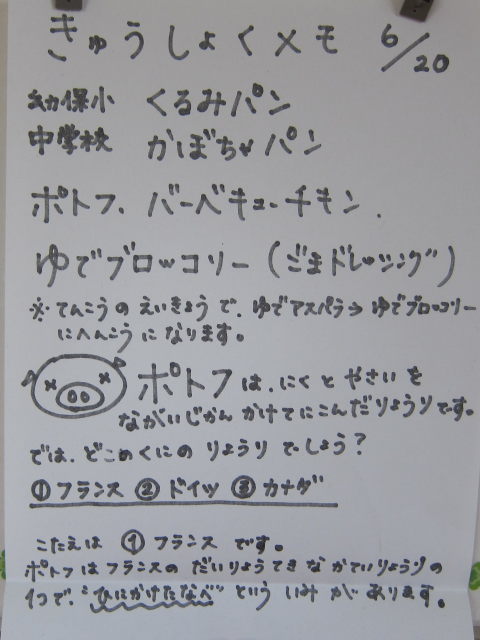 きゅうしょくメモ 6/20
幼保小 くるみパン
中学校 かぼちゃパン
ポトフ、バーベキューチキン、
ゆでブロッコリー(ごまドレッシング)
※てんこうのえいきょうで、ゆでアスパラ→ゆでブロッコリー
にへんこうになります。
ポトフは、にくとやさいを
ながいじかんかけてにこんだりょうりです。
では、どこのくにのりょうりでしょう?
①フランス ②ドイツ ③カナダ
こたえは ①フランスです。
ポトフはフランスのだいりょうてきなかていりょうりの
1つで、“ひにかけたなべ”といういみがあります。